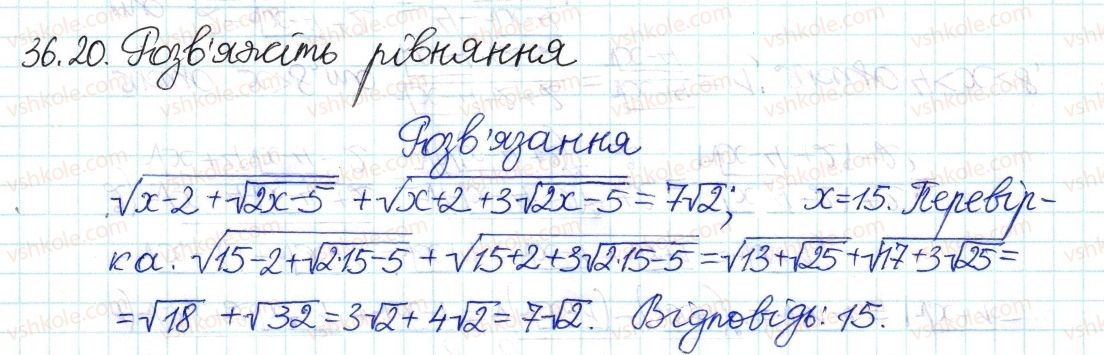 36.20. Розв'яжіть рівняння
Розв'язання
√(x-2+√(2x-5)) + √(x+2+3√(2x-5)) = 7√2; x=15. Перевір-
ка. √(15-2+√(2·15-5)) + √(15+2+3√(2·15-5)) = √(13+√25) + √(17+3√25) =
= √18 + √32 = 3√2 + 4√2 = 7√2. Відповідь: 15.